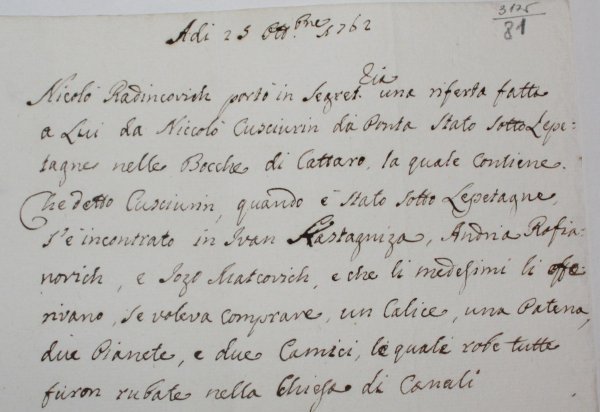 3175
81
Adi 25 Ott.bne 1762
Nicolò Radincovich portò in Segret.ria una riferta fatta
a Lui da Niccolò Cusciurin da Ponta Stato Sotto Lepe-
tagne nelle Bocche di Cattaro, la quale contiene.
Che detto Cusciurin, quando è Stato Sotto Lepetagne,
s'è incontrato in Ivan Kastagniza, Andria Rafia-
novich, e Jozo Matcovich, e che li medesimi li offe
rivano, se voleva comprare, un Calice, una Patena,
due Pianete, e due Camici, le quali robe tutte
furon rubate nella Chiesa di Canali